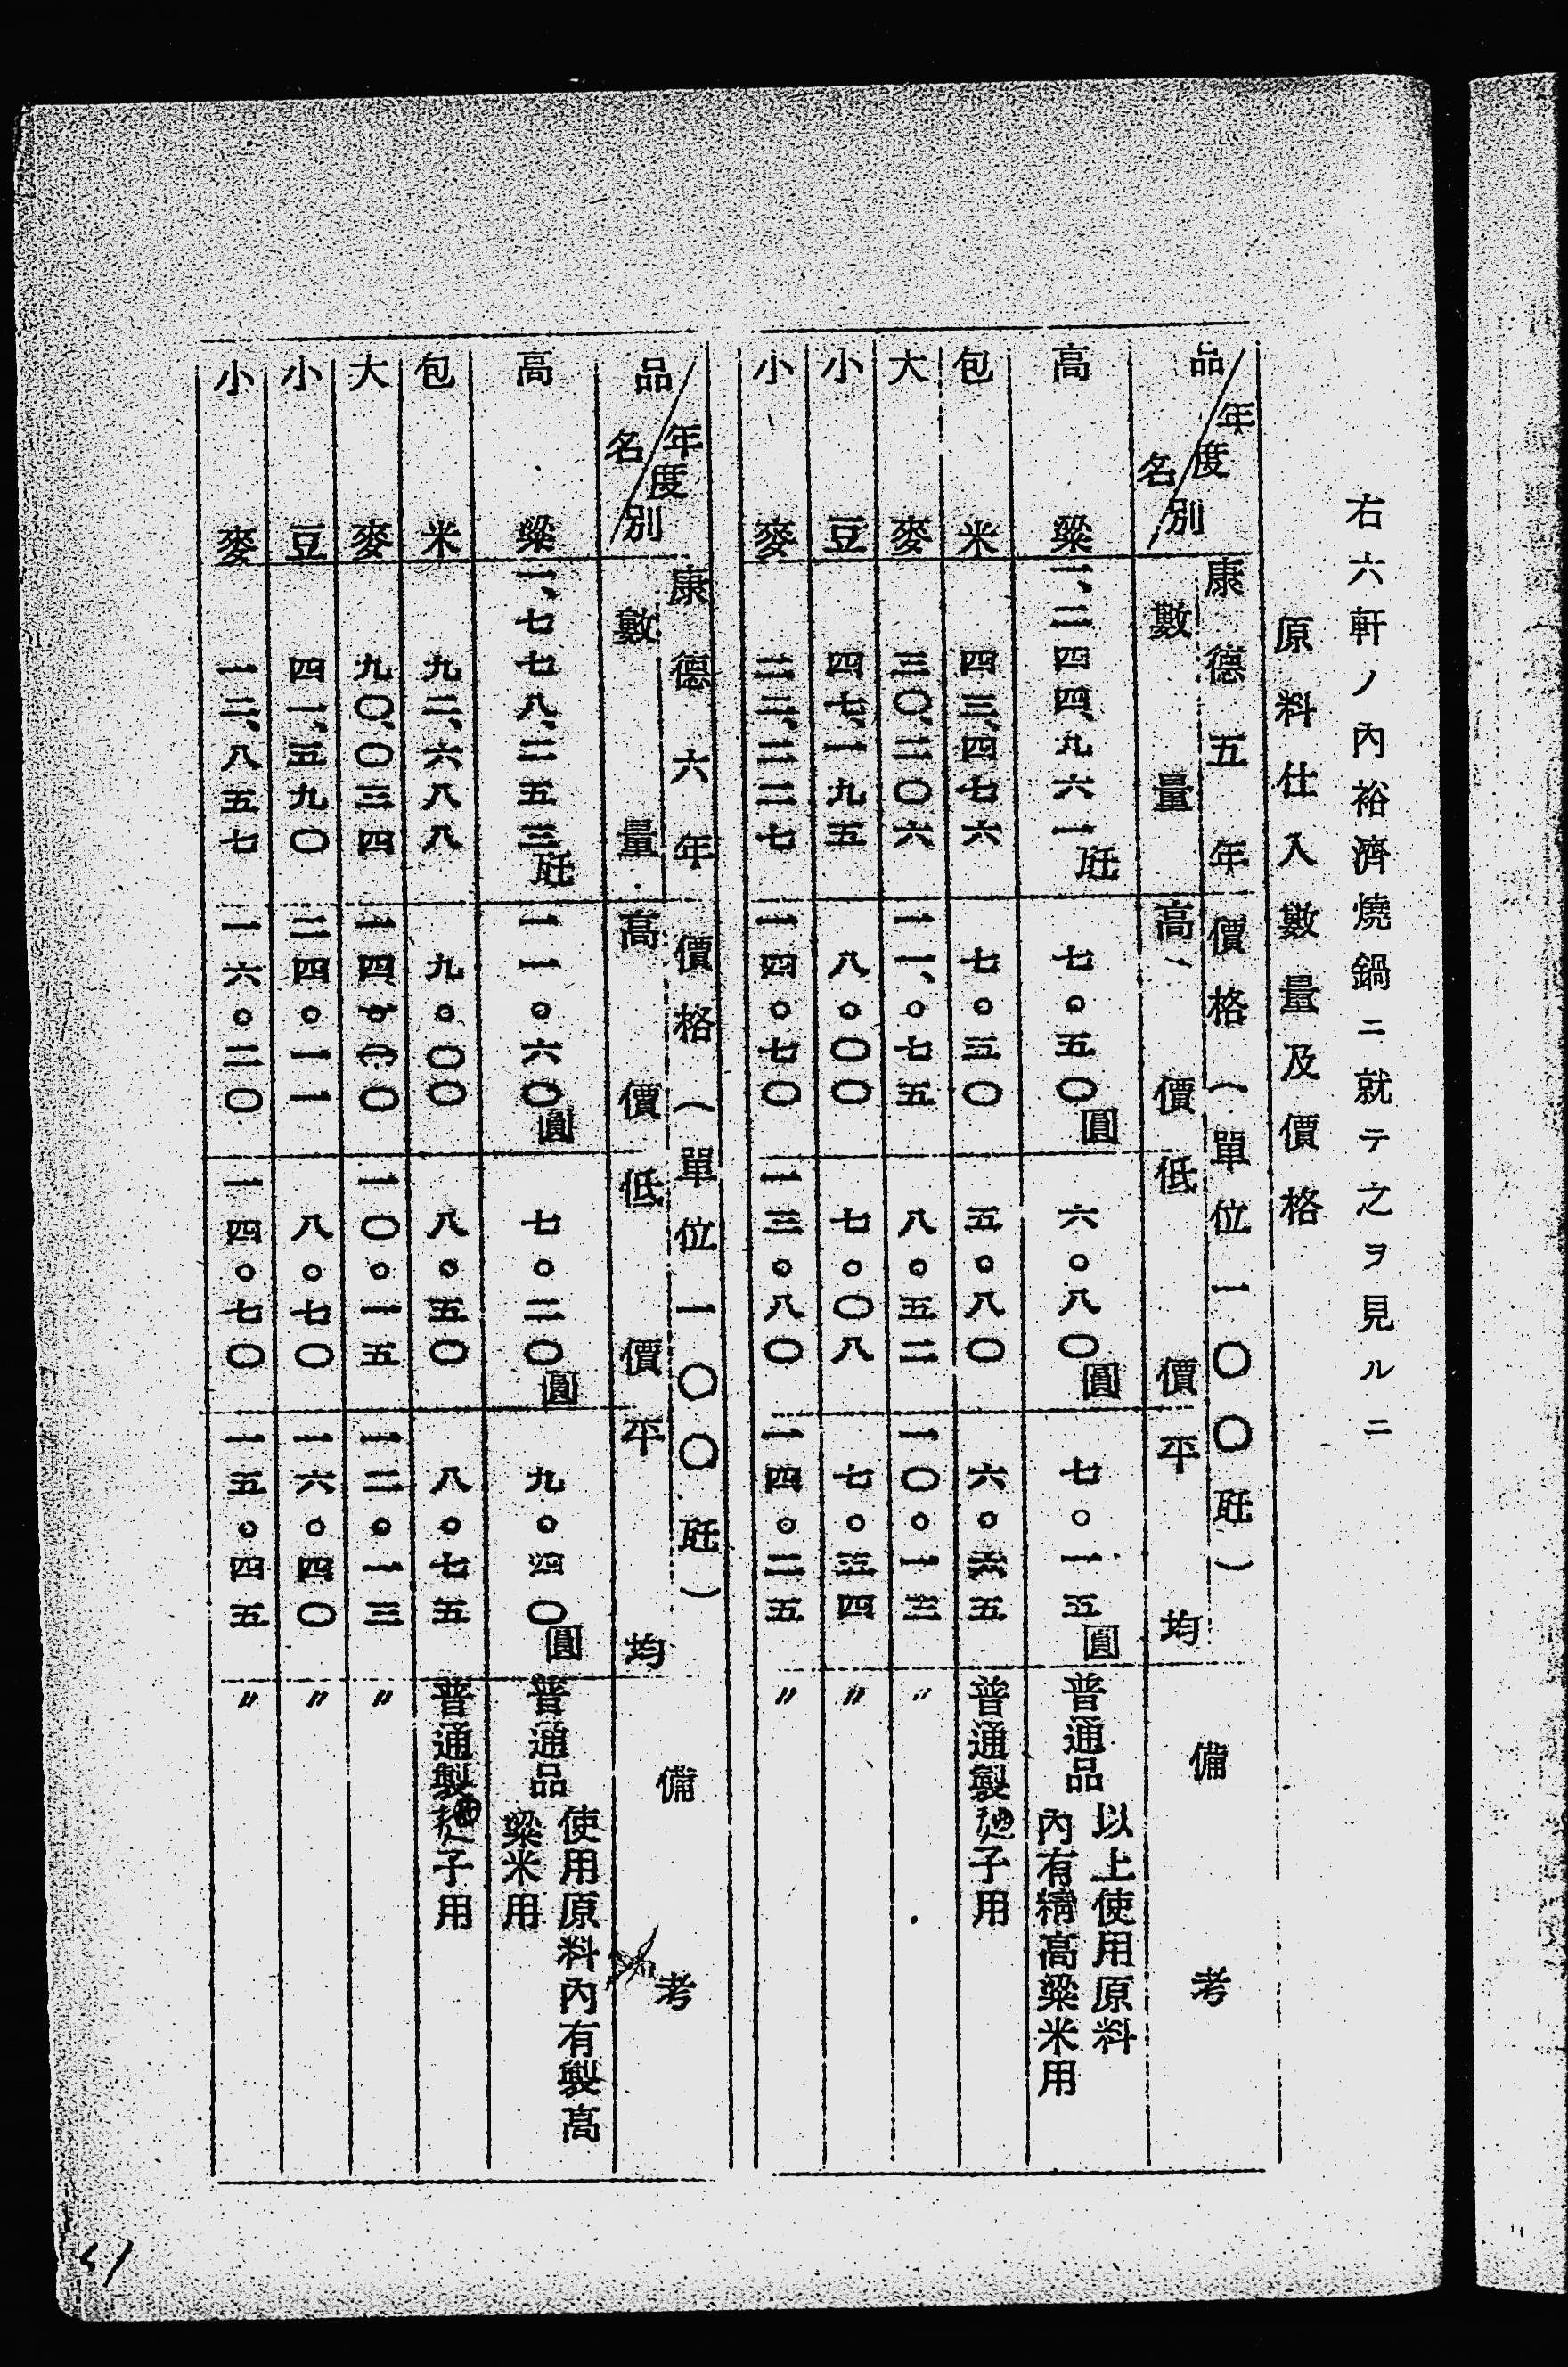 右六軒ノ內裕濟燒鍋ニ就テ之ヲ見ルニ
原料仕入數量及價格
品名 年度別 康德五年 價格(單位一〇〇瓩) 備考
數量 高價 低價 平均
高粱 一、二四四、九六一瓩 七。五〇圓 六。八〇圓 七。一五圓 普通品 以上使用原料
內有精高粱米用
包米 四三、四七六 七。五〇 五。八〇 六。六五 普通製麯子用
大麥 三〇、二〇六 一一、。七五 八。五二 一〇。一三 〃
小豆 四七、一九五 八。〇〇 七。〇八 七。三四 〃
小麥 二三、二二七 一四。七〇 一三。八〇 一四。二五 〃
品名 年度別 康德六年 價格(單位一〇〇瓩) 備考
數量 高價 低價 平均
高粱 一、七七八、二五三瓩 一一。六〇圓 七。二〇圓 九。四〇圓 普通品 使用原料內有製高
粱米用
包米 九二、六八八 九。〇〇 八。五〇 八。七五 普通製麯子用
大麥 九〇、〇三四 一四。一〇 一〇。一五 一二。一三 〃
小豆 四一、五九〇 二四。一一 八。七〇 一六。四〇 〃
小麥 一二、八五七 一六。二〇 一四。七〇 一五。四五 〃